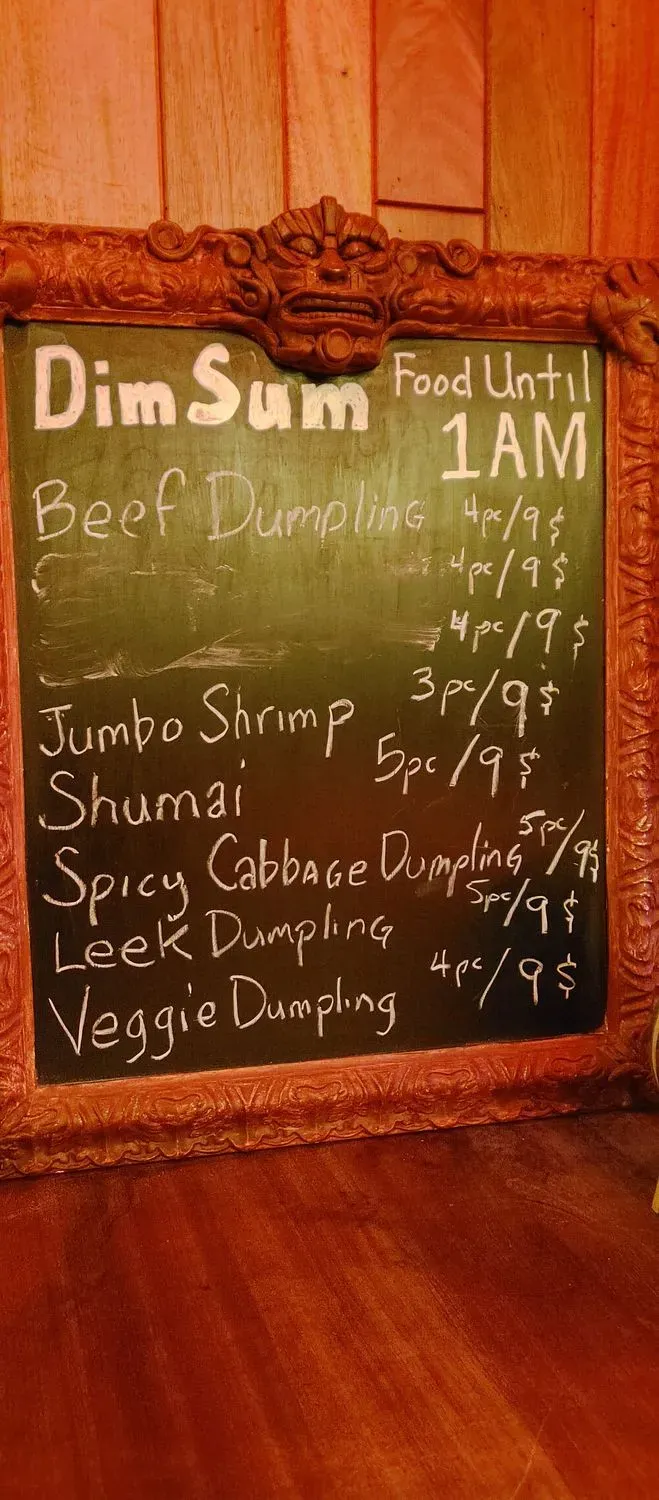 Dim Sum Food Until
1AM
Beef Dumpling 4pc/9$
4pc/9$
4pc/9$
Jumbo Shrimp 3pc/9$
Shumai 5pc/9$
Spicy Cabbage Dumpling 5pc/9$
Leek Dumpling 5pc/9$
Veggie Dumpling 4pc/9$